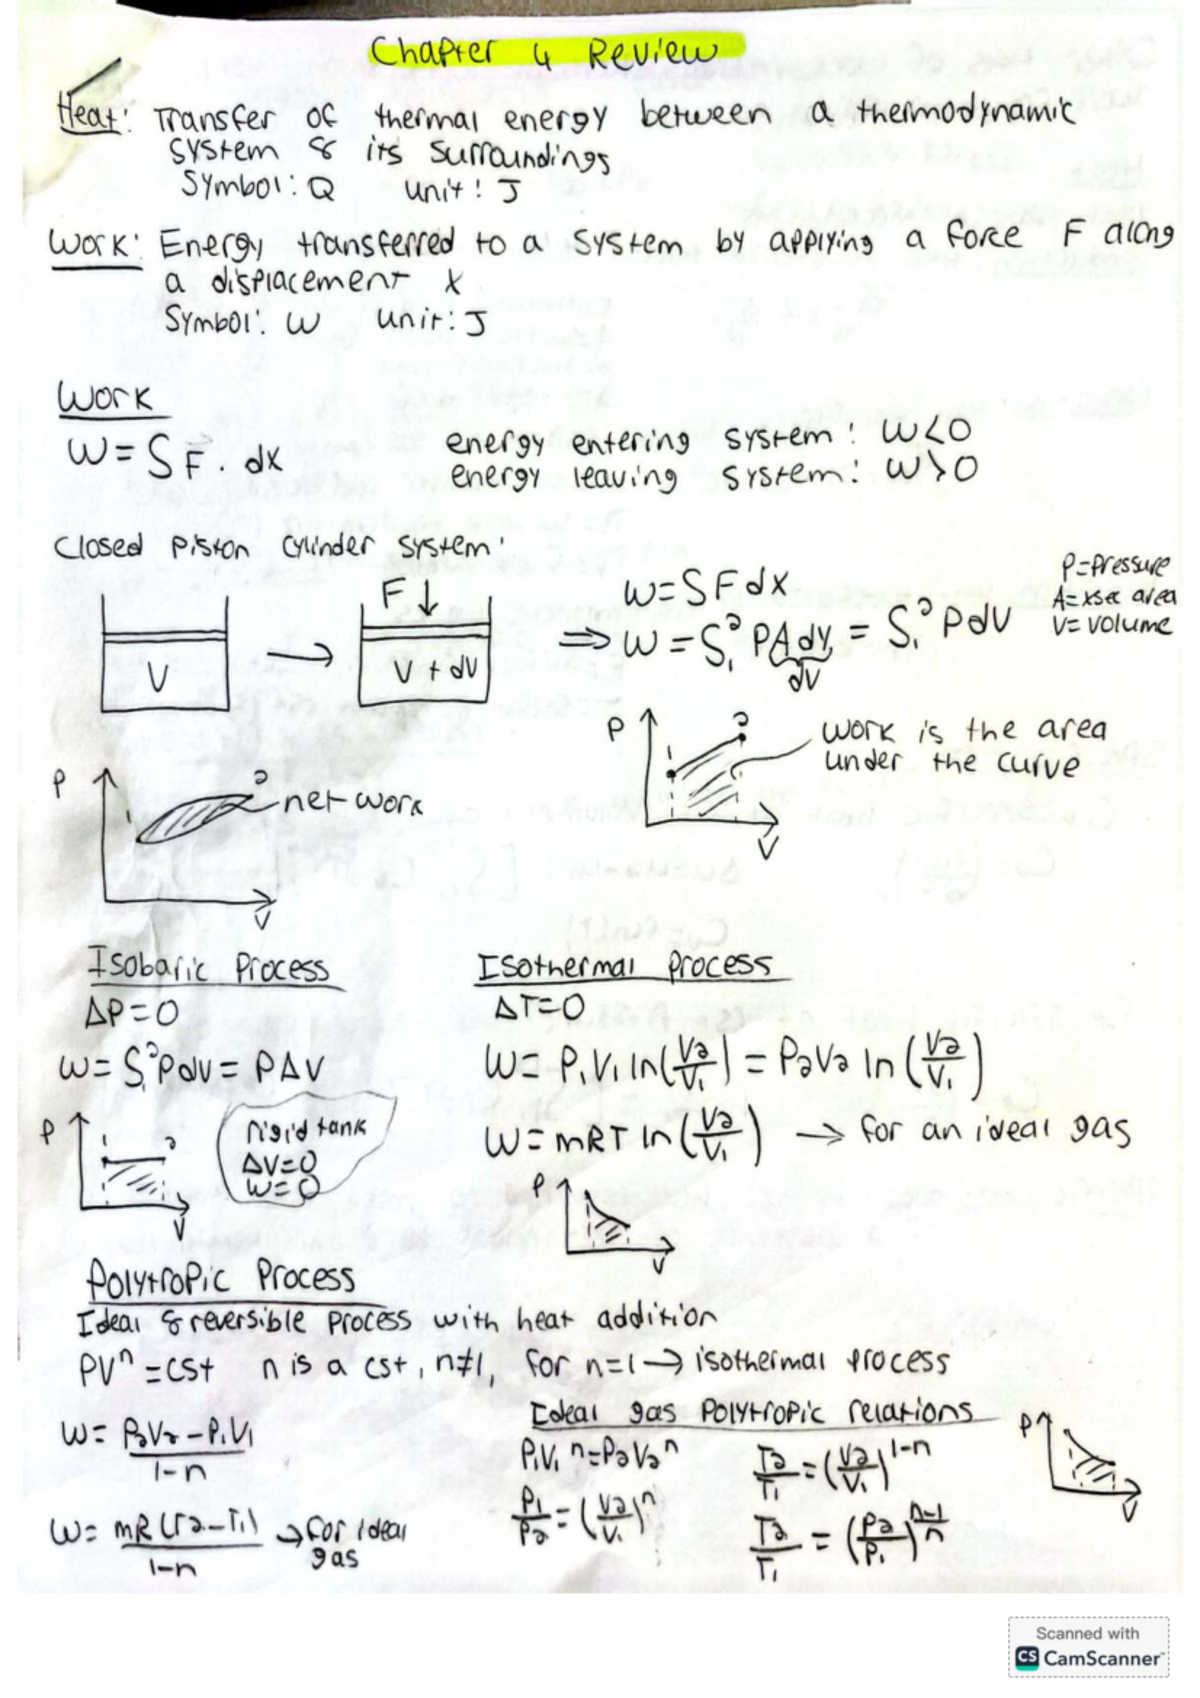 Chapter 4 Review
Heat: Transfer of thermal energy between a thermodynamic
system & its surroundings
Symbol: Q unit: J
Work: Energy transferred to a system by applying a force F along
a displacement x
Symbol: W unit: J
Work
W = ∫ F⃗ · dx energy entering system: W<0
energy leaving system: W>0
Closed piston cylinder system:
V
F↓
V + dV
W = ∫ F dx
⇒ W = ∫₁² PA dy = ∫₁² P dV
dV
P=Pressure
A=xsec area
V=volume
P 1 2 V
work is the area
under the curve
P 1 2 V
net work
Isobaric Process
ΔP=0
W = ∫₁² P dV = PΔV
P 1 2 V
rigid tank
ΔV=0
W=0
Isothermal Process
ΔT=0
W = P₁V₁ ln(V₂/V₁) = P₂V₂ ln(V₂/V₁)
W = mRT ln(V₂/V₁) → for an ideal gas
P V
Polytropic Process
Ideal & reversible process with heat addition
PVⁿ = cst n is a cst, n≠1, for n=1 → isothermal process
W = (P₂V₂ - P₁V₁)/(1-n)
W = mR(T₂-T₁)/(1-n) → for ideal
gas
Ideal gas polytropic relations
P₁V₁ⁿ=P₂V₂ⁿ T₂/T₁ = (V₂/V₁)^(1-n)
P₁/P₂ = (V₂/V₁)ⁿ T₂/T₁ = (P₂/P₁)^((n-1)/n)
P V
Scanned with
CS CamScanner